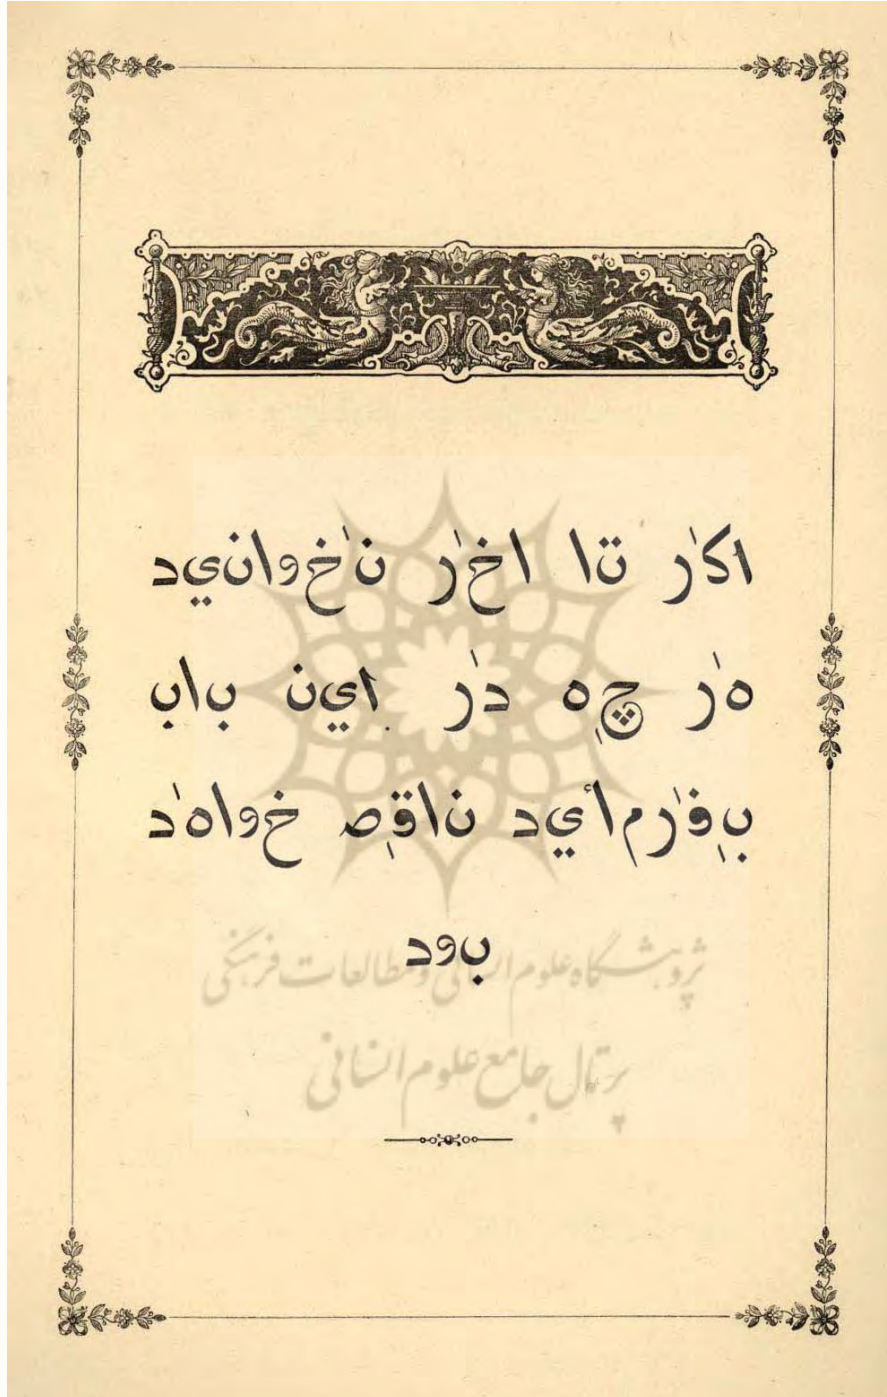 اکَر تا اخَر نَخوانيد
هَر چِه دَر اِين باب
بِفَرمأيد ناقِص خواهَد
بود
پژوهشگاه علوم انسانی و مطالعات فرهنگی
پرتال جامع علوم انسانی